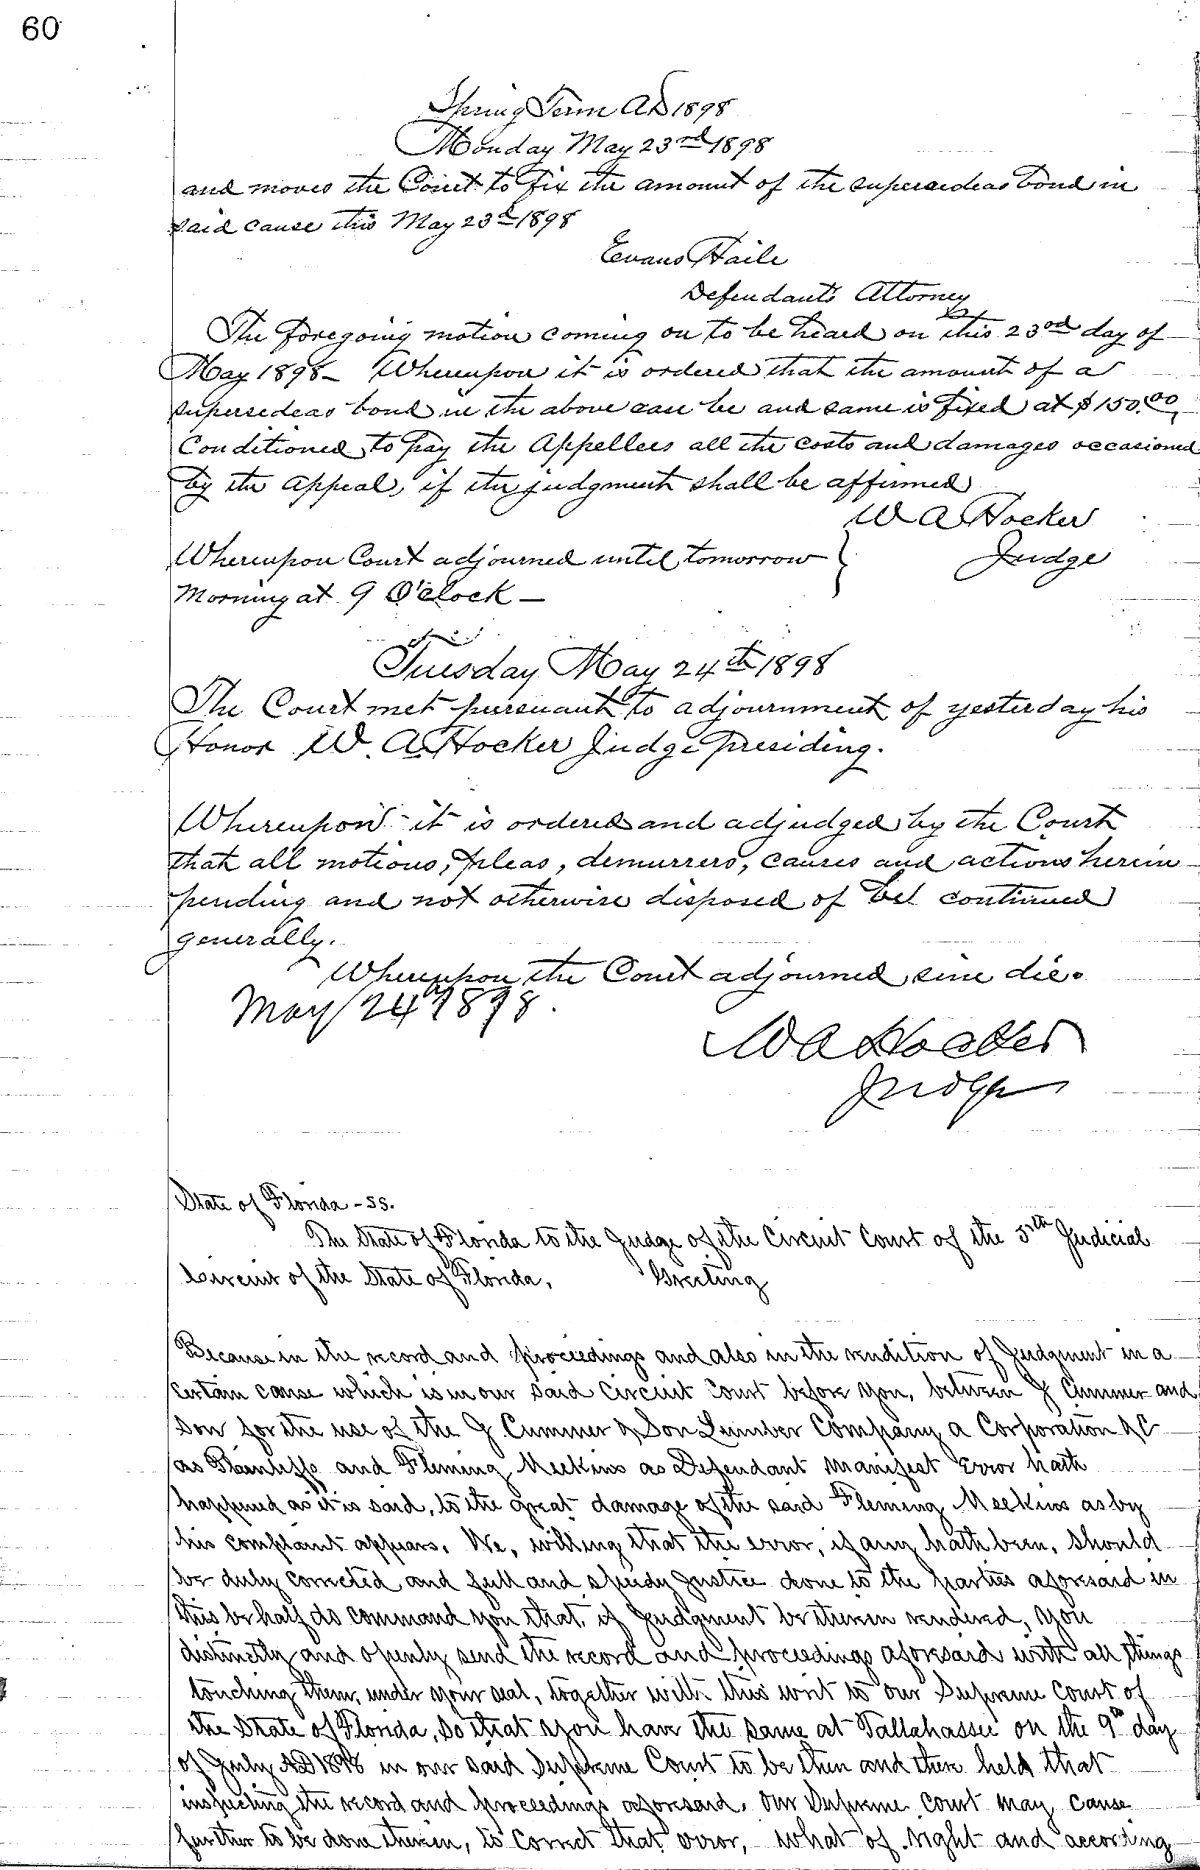 60
Spring Term AD 1898
Monday May 23rd 1898
and moves the Court to fix the amount of the supersedeas bond in
said cause this May 23d 1898
Evans Haile
Defendants Attorney
The foregoing motion coming on to be heard on this 23rd day of
May 1898 – Whereupon it is ordered that the amount of a
supersedeas bond in the above case be and same is fixed at $150.00,
Conditioned to pay the Appellees all the costs and damages occasioned
by the appeal, if the judgment shall be affirmed
W A Hocker
Judge
Whereupon Court adjourned until tomorrow
Morning at 9 O'Clock –
Tuesday May 24th 1898
The Court met pursuant to adjournment of yesterday his
Honor W. A. Hocker Judge presiding.
Whereupon it is ordered and adjudged by the Court
that all motions, pleas, demurrers, causes and actions herein
pending and not otherwise disposed of be continued
generally.
Whereupon the Court adjourned sine die.
May 24th 1898.
W A Hocker
Judge
State of Florida – SS.
The State of Florida to the Judge of the Circuit Court of the 5th Judicial
Circuit of the State of Florida, Greeting
Because in the record and proceedings and also in the rendition of Judgment in a
certain cause which is in our said Circuit Court before you, between J Cummer and
Son for the use of the J Cummer & Son Lumber Company a Corporation &C
as Plaintiffs and Fleming Meekins as Defendant manifest Error hath
happened as it is said, to the great damage of the said Fleming Meekins as by
his complaint appears. We, willing that the error, if any hath been, should
be duly corrected and full and speedy Justice done to the parties aforesaid in
this behalf do command you that, if Judgment be therein rendered, you
distinctly and openly send the record and proceedings aforesaid with all things
touching them, under your seal, together with this writ to our Supreme Court of
the State of Florida, So that you have the same at Tallahassee on the 9th day
of July AD 1898 in our said Supreme Court to be then and there held that
inspecting the record and proceedings aforesaid, our Supreme Court may cause
further to be done therein, to correct that error, what of right and according